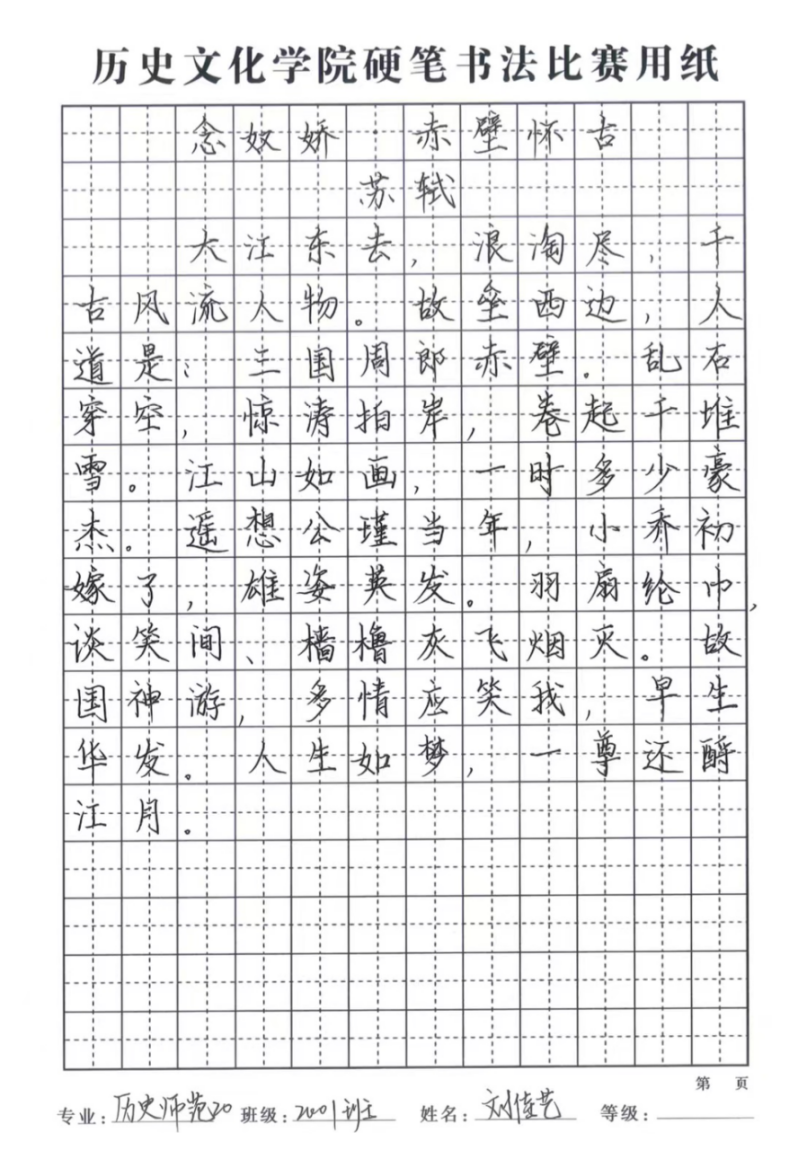 历史文化学院硬笔书法比赛用纸
念奴娇·赤壁怀古
苏轼
大江东去，浪淘尽，千
古风流人物。故垒西边，人
道是：三国周郎赤壁。乱石
穿空，惊涛拍岸，卷起千堆
雪。江山如画，一时多少豪
杰。遥想公瑾当年，小乔初
嫁了，雄姿英发。羽扇纶巾，
谈笑间、樯橹灰飞烟灭。故
国神游，多情应笑我，早生
华发。人生如梦，一尊还酹
江月。
第 页
专业：历史师范20 班级：2001班 姓名：刘佳艺 等级：